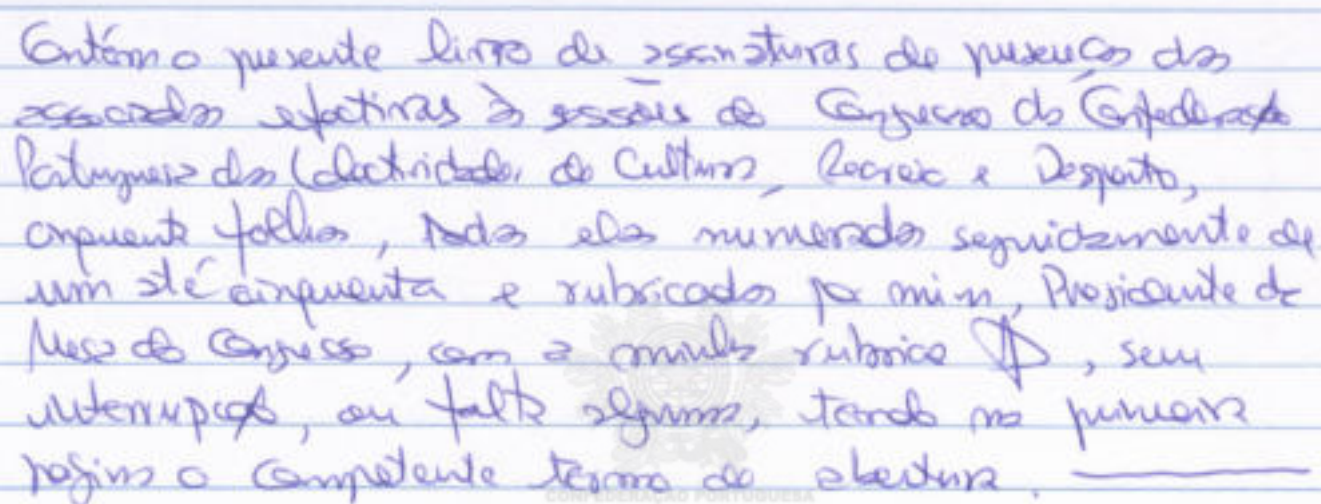 Contém o presente livro de assinaturas de presenças das
associadas efectivas às sessões do Congresso da Confederação
Portuguesa das Colectividades de Cultura, Recreio e Desporto,
cinquenta folhas, todas elas numeradas seguidamente de
um até cinquenta e rubricadas por mim, Presidente da
Mesa do Congresso, com a minha rubrica, sem
interrupção, ou falta alguma, tendo na primeira
página o competente termo de abertura.
CONFEDERAÇÃO PORTUGUESA